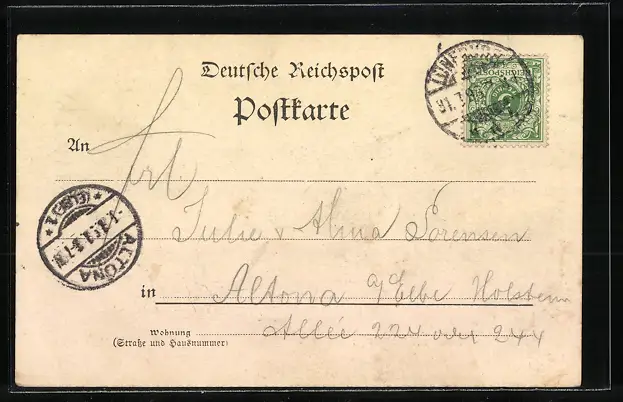 Deutsche Reichspost
Postkarte
REICHSPOST
An
Frl
Julie & Alma Sorensen
in Altona a/Elbe Holstein
Wohnung
(Straße und Hausnummer)
Allée 224 oder 244
ALTONA
(ELBE) 1